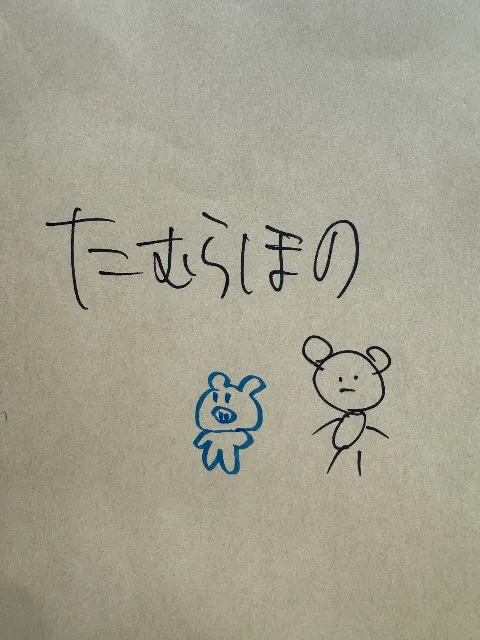 たむらほの